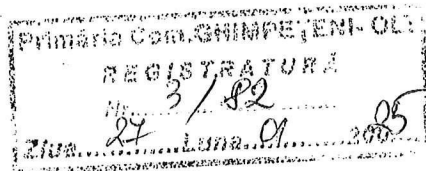 Primăria Com.GHIMPEŢENI-OLT
REGISTRATURĂ
Nr. 3 / 82
Ziua 27 Luna 01 2005